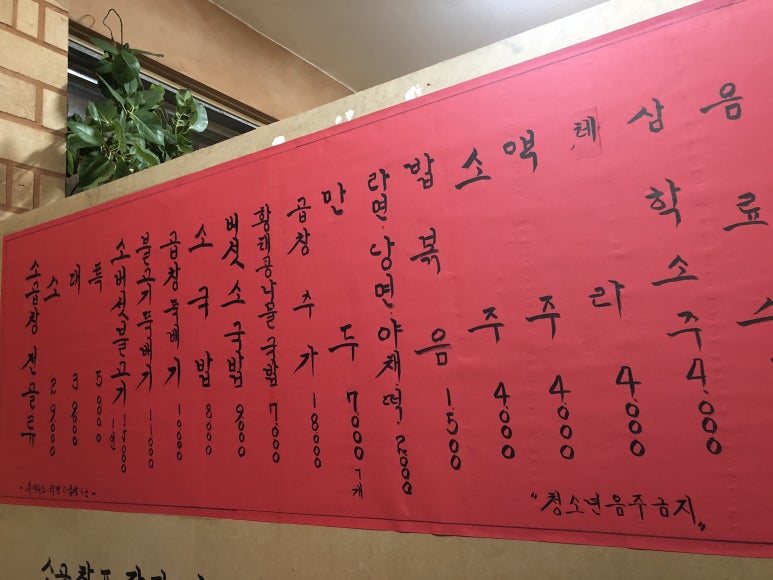 소곱창전골류
소 29000
대 39000
특 50000
소버섯불고기 1인 15000
불고기뚝배기 11000
곱창뚝배기 10000
소국밥 8000
버섯소국밥 9000
황태콩나물국밥 7000
곱창추가 18000
만두 7000 7개
라면·당면·야채·떡 2000
밥볶음 1500
소주 4000
맥주 4000
테라 4000
삼학소주 4000
음료수
"청소년음주금지"